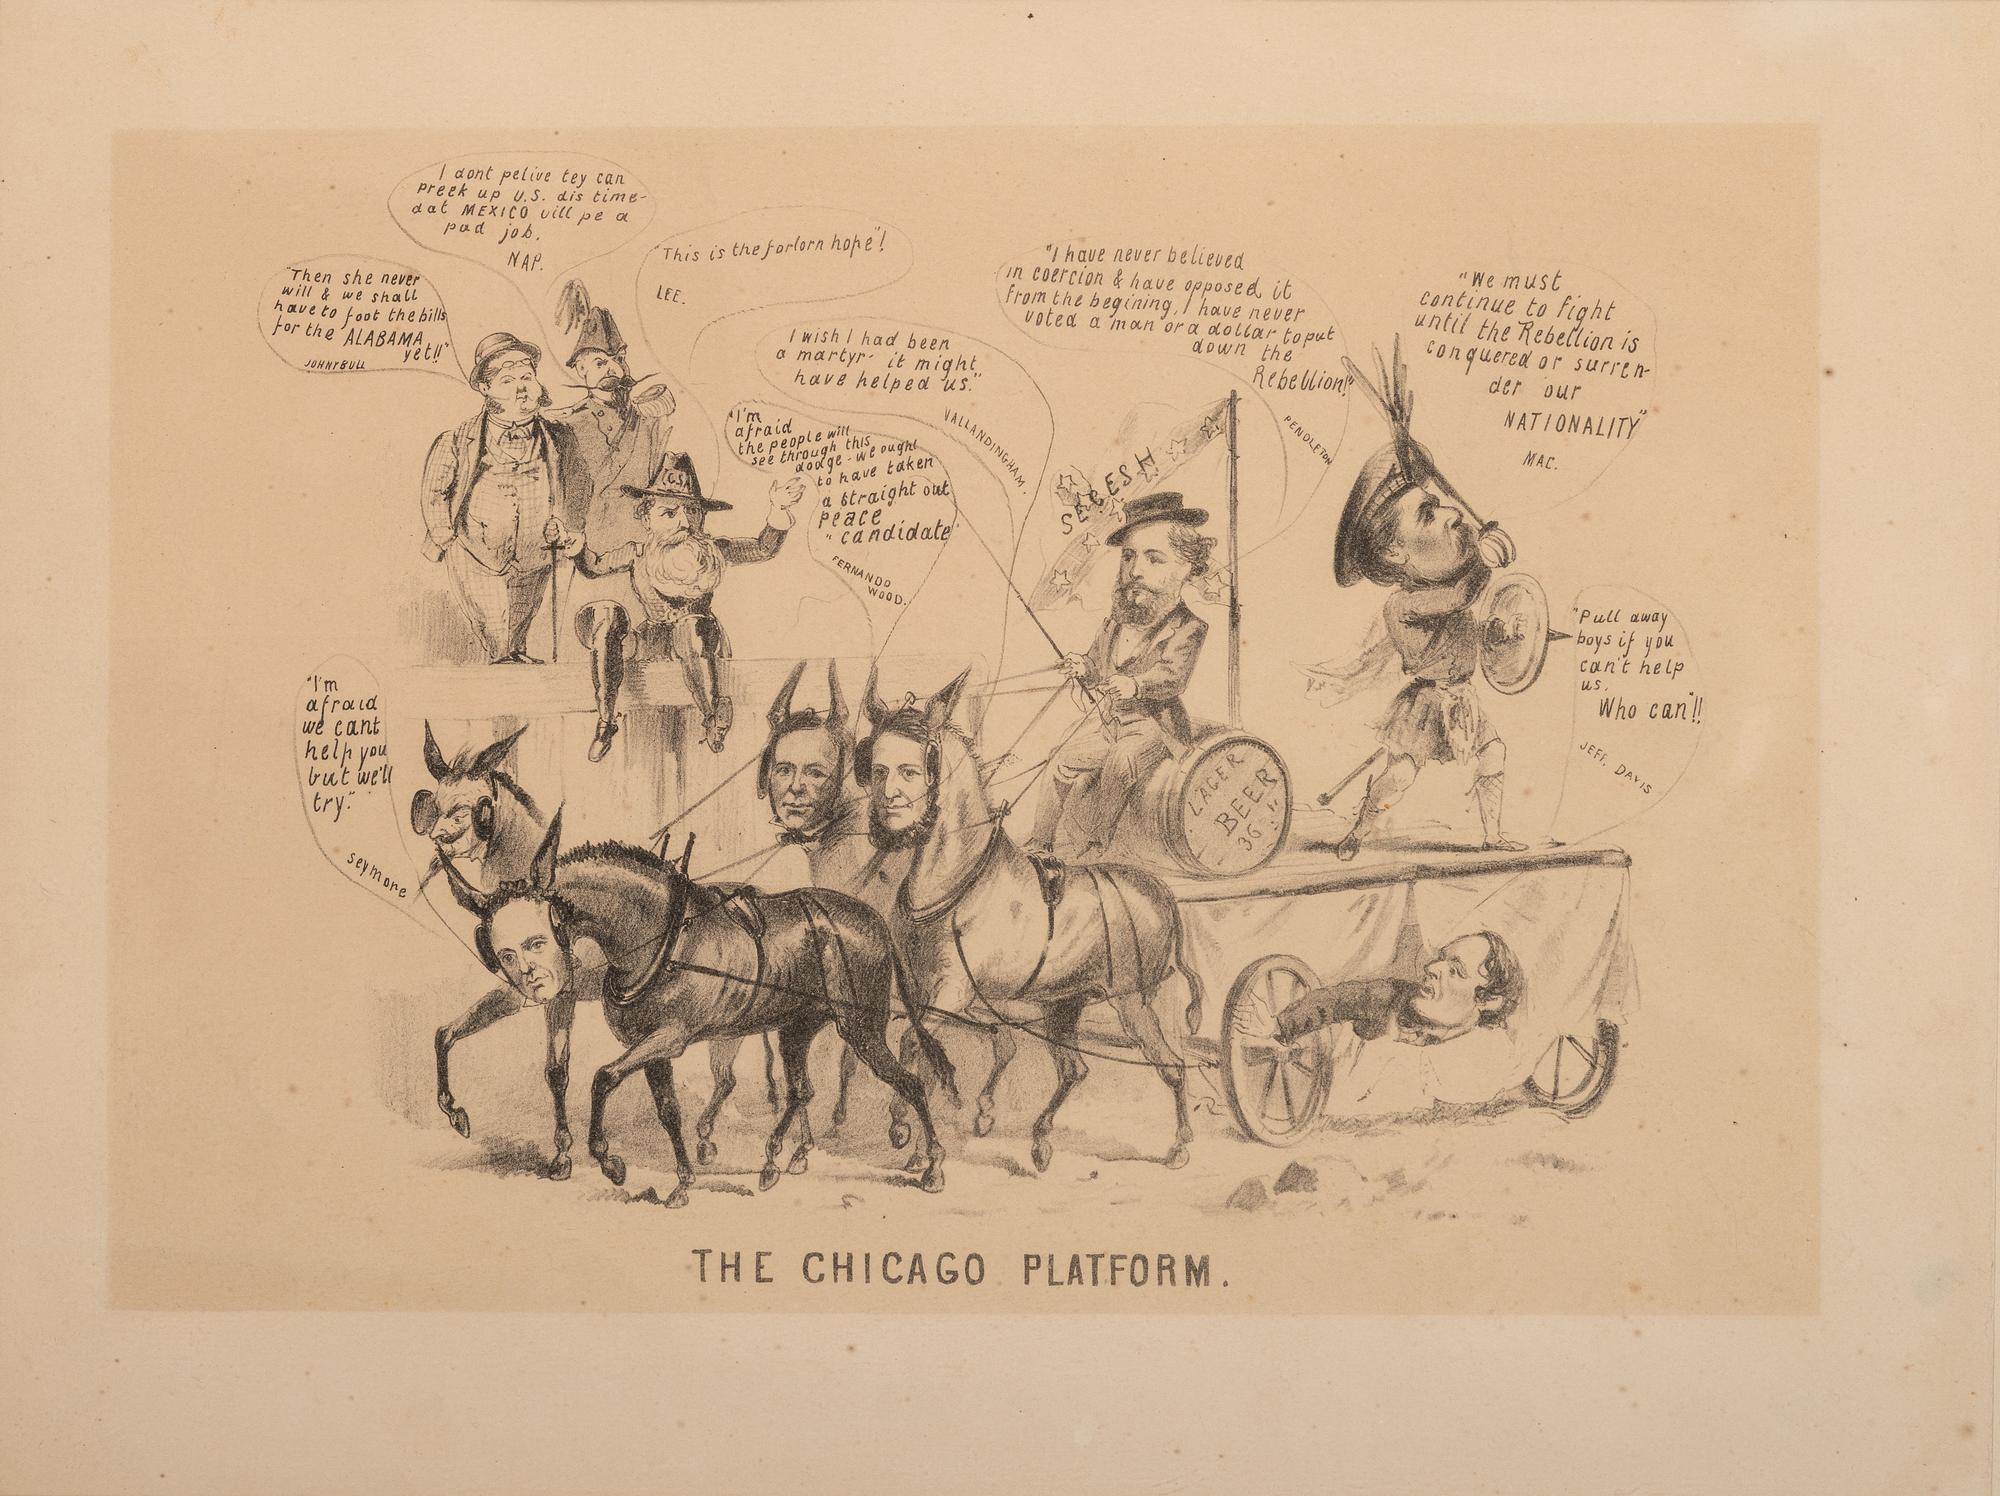 I dont pelive tey can
preek up U.S. dis time-
dat MEXICO vill pe a
pad job.
NAP.
"Then she never
will & we shall
have to foot the bills
for the ALABAMA
yet!!"
JOHNY BULL
"This is the forlorn hope"!
LEE.
I wish I had been
a martyr- it might
have helped us."
VALLANDINGHAM.
"I'm
afraid
the people will
see through this
dodge - we ought
to have taken
a straight out
peace
"candidate"
FERNANDO
WOOD.
"I have never believed
in coercion & have opposed it
from the begining, I have never
voted a man or a dollar to put
down the
Rebellion!"
PENDLETON
"We must
continue to fight
until the Rebellion is
conquered or surren-
der our
NATIONALITY"
MAC.
"Pull away
boys if you
can't help
us.
Who can"!!
JEFF. DAVIS
"I'm
afraid
we cant
help you
but we'll
try."
Seymore
CSA
SECESH
LAGER
BEER
36
THE CHICAGO PLATFORM.